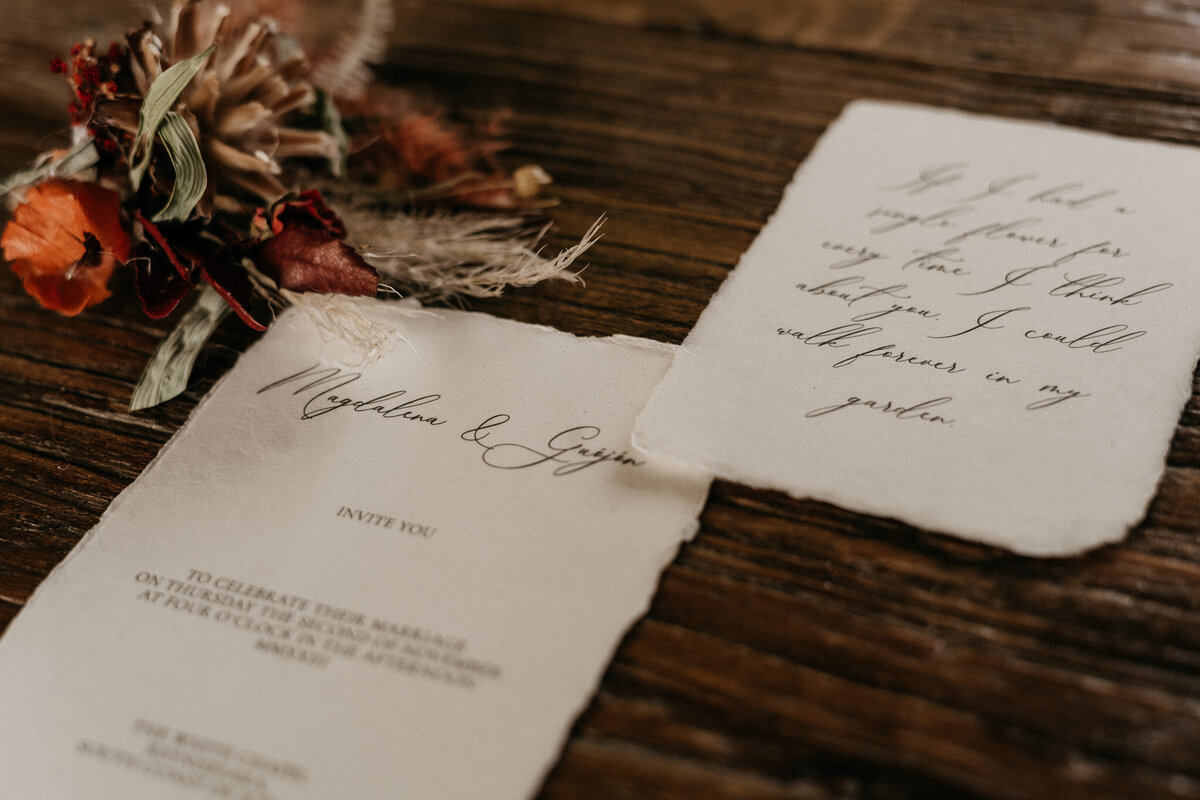 Magdalena & Guðjón
INVITE YOU
TO CELEBRATE THEIR MARRIAGE
ON THURSDAY THE SECOND OF NOVEMBER
AT FOUR O'CLOCK IN THE AFTERNOON
THE WHITE
SOUTH COAST OF
If I had a
single flower for
every time I think
about you. I could
walk forever in my
garden.